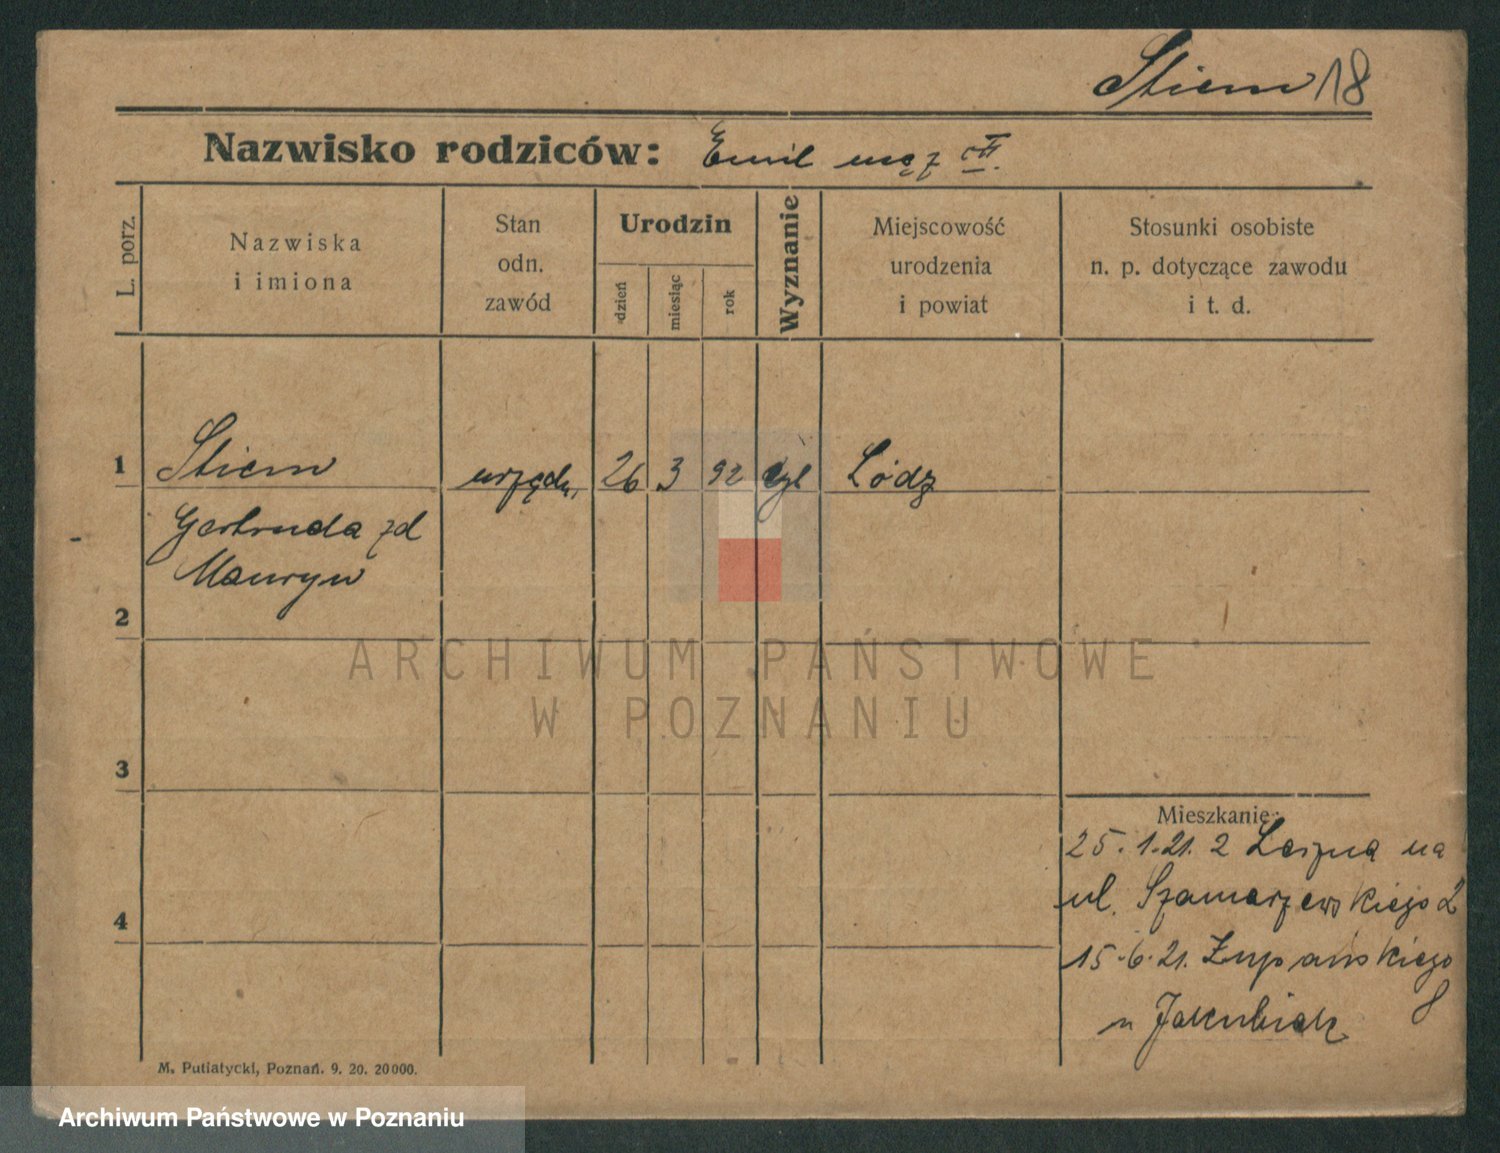 Stiem 18
Nazwisko rodziców: Emil mąż
L. porz.
Nazwiska
i imiona
Stan
odn.
zawód
Urodzin
dzień
miesiąc
rok
Wyznanie
Miejscowość
urodzenia
i powiat
Stosunki osobiste
n. p. dotyczące zawodu
i t. d.
1 Stiem urzędn. 26 3 92 Łódz
Gertruda zd
2
3
4
Mieszkanie:
25.1.21. z Leszna na
ul. Szamarzewskiego 2
15.6.21. Żupańskiego
8
u Jakubiak
M. Putiatycki, Poznań. 9. 20. 20000.
ARCHIWUM PAŃSTWOWE
W POZNANIU
Archiwum Państwowe w Poznaniu